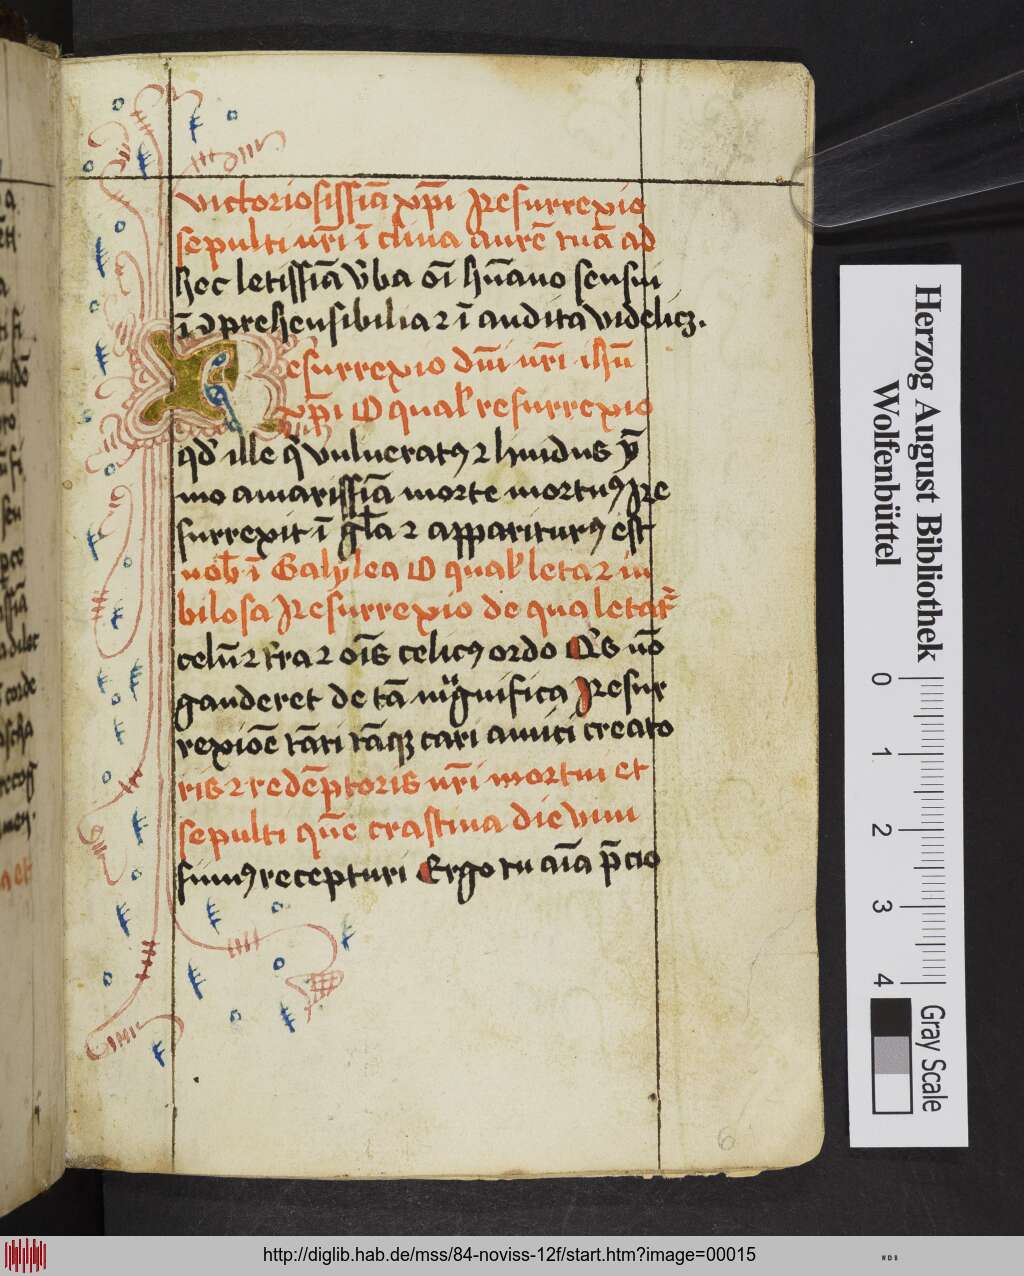 victoriosissiā xp̄i Resurrexio
sepulti nr̄i ī clina aurē tuā ad
hec letissiā v̄ba oī hūano sensui
īꝯprehensibilia ⁊ ī audita videlicꝫ.
Resurrexio dn̄i nr̄i ihū
xp̄i O qual̛ resurrexio
qd̛ ille q̄ vulneratꝰ ⁊ liuidus
mo amarissiā morte mortuꝰ Re
surrexit ī gl̄a ⁊ appariturꝰ est
nob̛ ī Galylea O qual̛ leta ⁊ iu
bilosa Resurrexio de qua letat̄
celū ⁊ t̄ra ⁊ oīs celicꝰ ordo Q̛s nō
gauderet de tā mignifica Resur
rexiōe tāti tāqꝫ cari amici creato
ris ⁊ redēptoris nr̄i mortui et
sepulti quē crastina die viui
simꝰ recepturi Ergo tu aīa p̄cio
6
Herzog August Bibliothek
Wolfenbüttel
0 1 2 3 4
Gray Scale
http://diglib.hab.de/mss/84-noviss-12f/start.htm?image=00015
WDB